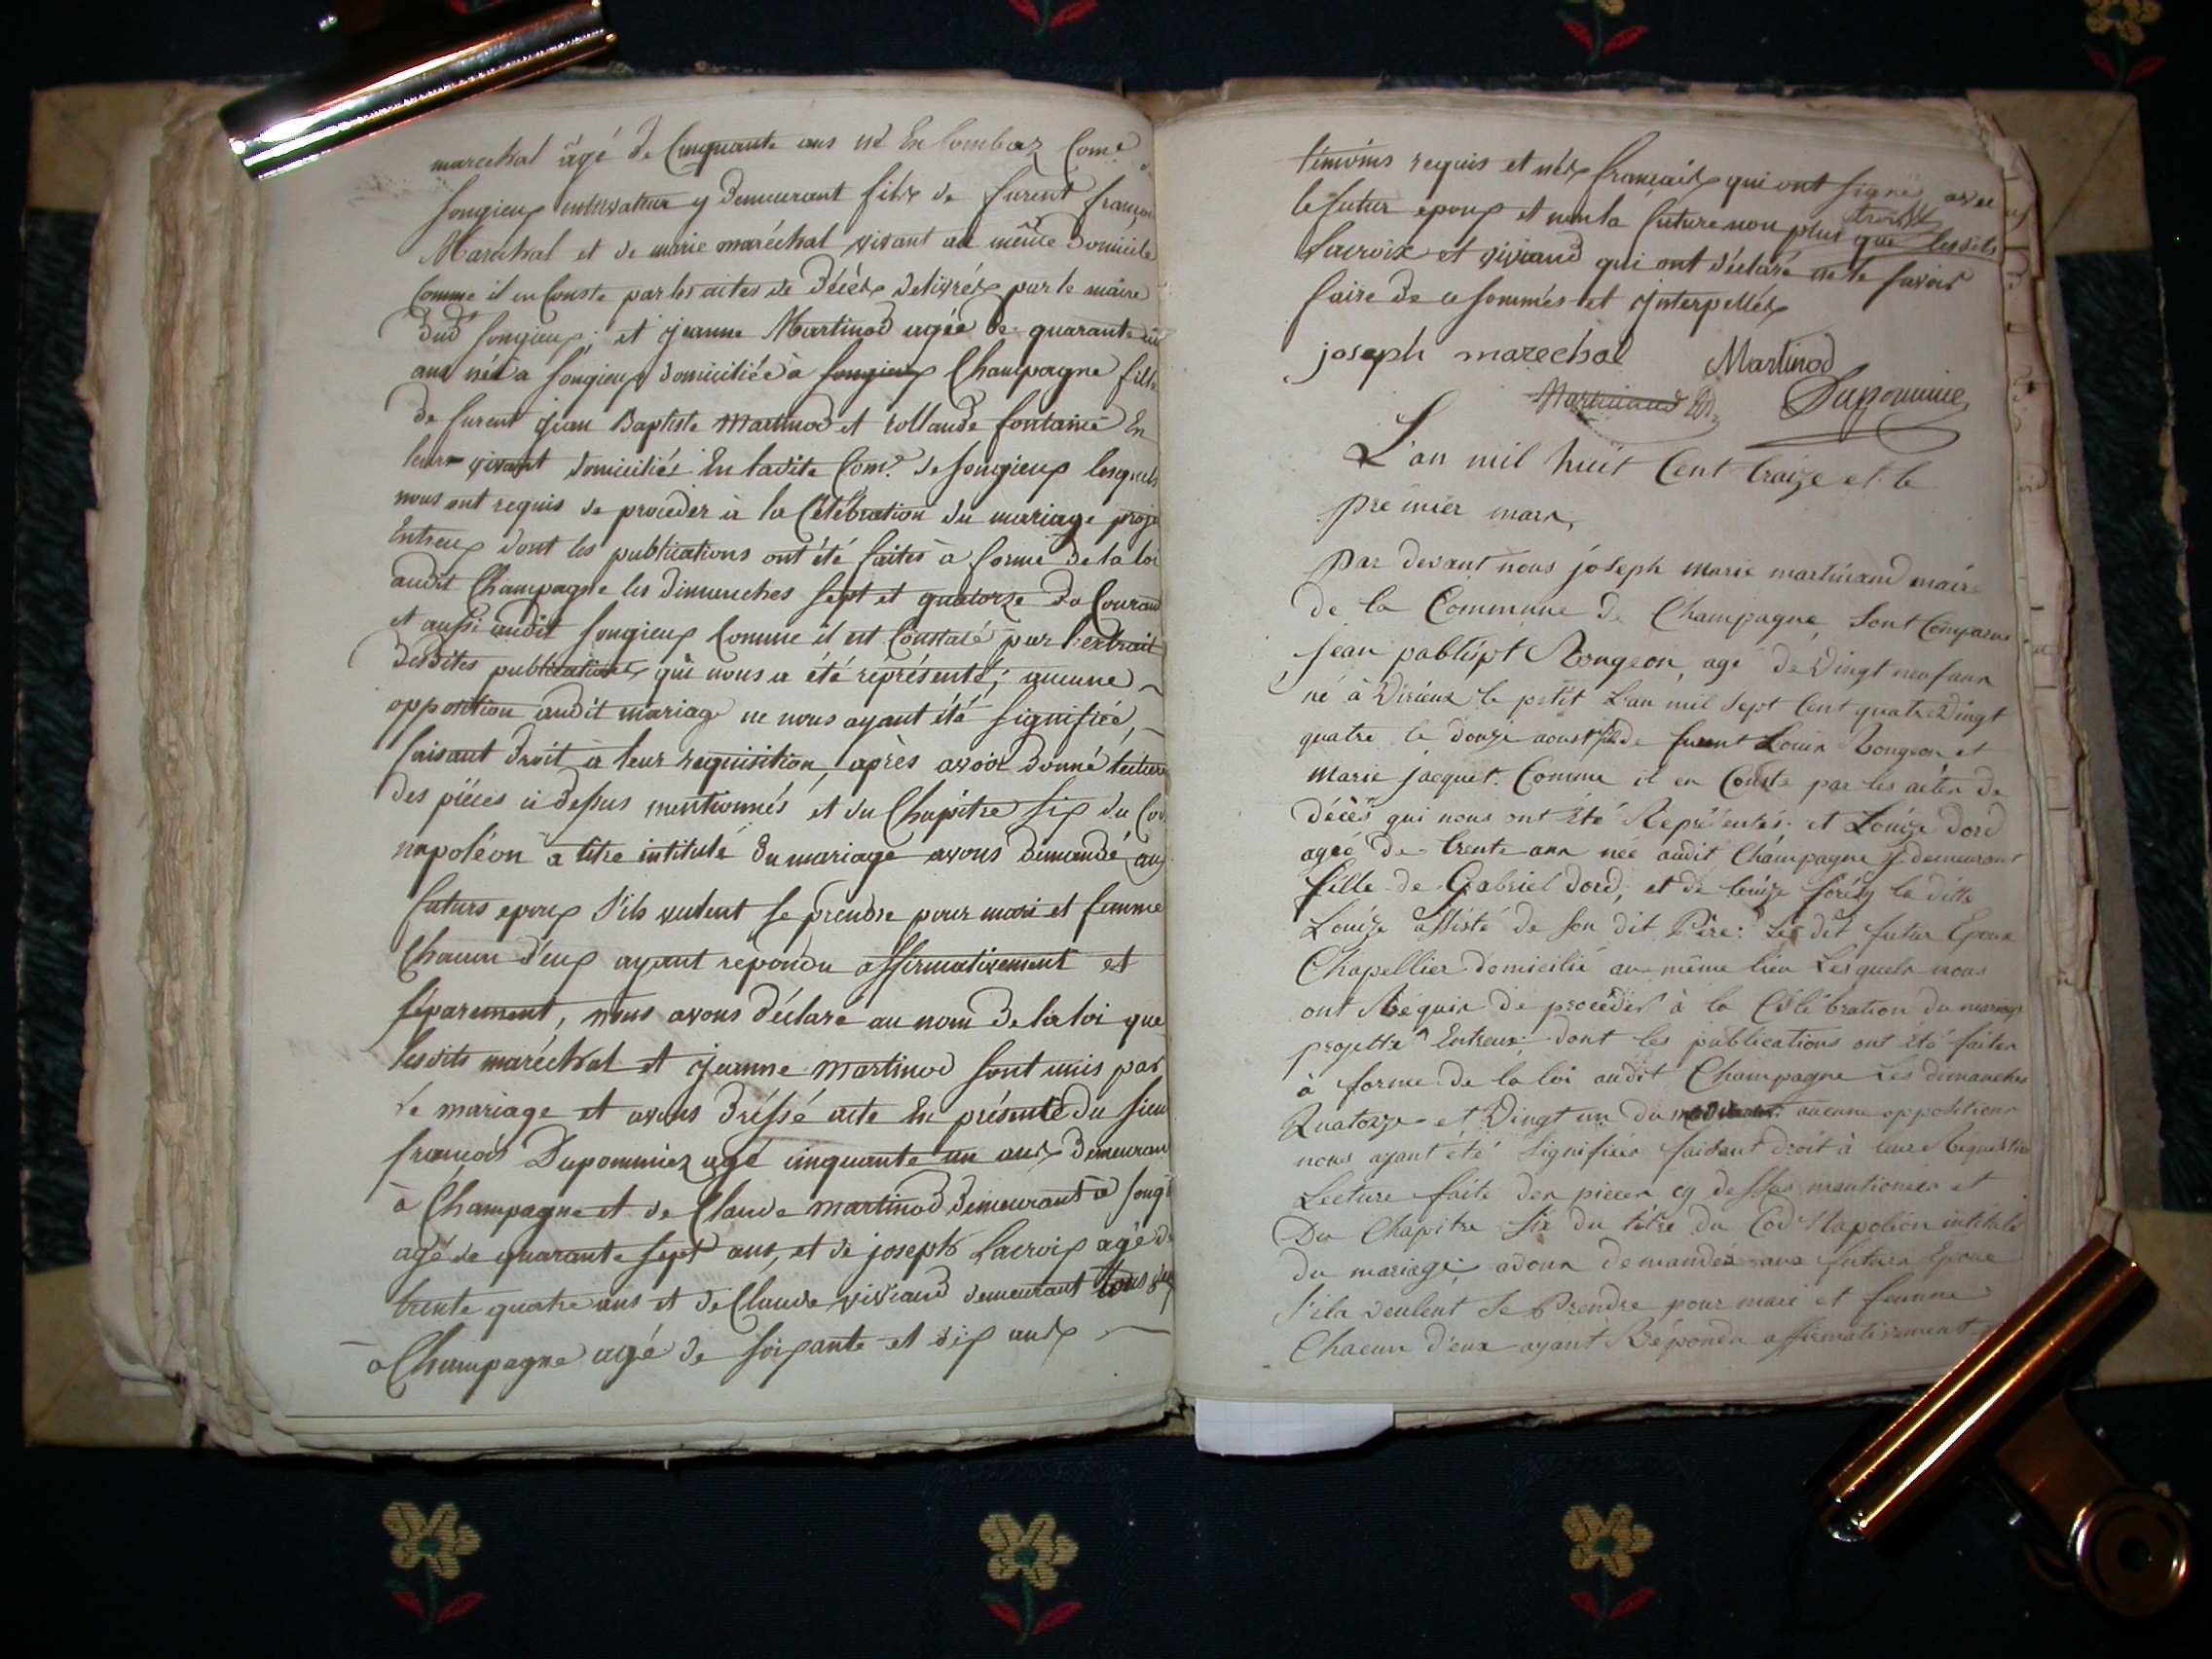 marechal âgé de Cinquante ans né En Lombaz Come
Songieux cultivateur y demeurant fils de furent françoi
Marechal et de marie maréchal vivant au même domicile
Comme il en Conste par les actes de décès delivrés par le maire
dud Songieux; et jeanne Martinod agée de quarante
ans née à Songieux domiciliée à Songieux Champagne fille
de furent jean Baptiste Martinod et rollande fontaine En
leur vivant domiciliés En ladite Come de Songieux lesquels
nous ont requis de proceder à la Célébration du mariage proje
Entreux dont les publications ont été faites à forme de la loi
audit Champagne les dimanches sept et quatorze du Courant
et aussi audit Songieux Comme il est Constaté par l'extrait
desdites publications qui nous a été représenté; aucune
opposition audit mariage ne nous ayant été signifiée,
faisant droit à leur requisition, après avoir donné lecture
des pièces ci dessus mentionnés et du Chapitre six du Cod
napoléon à titre intitulé du mariage avons demandé aux
futurs epoux s'ils veulent se prendre pour mari et femme
Chacun d'eux ayant repondu affirmativement et
séparement, nous avons déclaré au nom de la loi que
lesdits maréchal et jeanne martinod sont unis par
le mariage et avons dréssé acte En présence du sieur
francois Dupommiez agé cinquante un ans demeurant
à Champagne et de Claude Martinod demeurant à Songi
agé de quarante sept ans, et de joseph Lacroix agé de
trente quatre ans et de Claude viviand demeurant tous
à Champagne agé de soixante et dix ans
témoins requis et nés français qui ont signé avec
le futur epoux et non la future non plus que lesdits
Lacroix et viviand qui ont déclaré ne le savoir
faire de ce sommés et interpellés
joseph marechal Martinod
Martinand Dupommié
L'an mil huit Cent traize et le
premier mars,
Par devant nous joseph marie martinand maire
de la Commune de Champagne, sont Comparus
jean pabtispt Rongeon, agé de Vingt neuf ans
né à Virieux le petit L'an mil sept Cent quatre Vingt
quatre le douze aoust fils de furent Louis Rongeon et
Marie jacquet. Comme il en Conste par les actes de
décès qui nous ont Eté Représentés; et Louize dord
agée de trente ans née audit Champagne y demeurant
fille de Gabriel dord, et de louize la ditte
Louize assisté de son dit Père: Le dit futur Epoux
Chapellier domicilié au même lieu Lesquels nous
ont Réquis de procéder à la Célébration du mariage
projetté Entreux dont les publications ont été faites
à forme de la loi audit Champagne Les dimanches
Quatorze et Vingt un du aucune oppositions
nous ayant été signifiées faisant droit à leur Requestion
Lecture faite des pieces cy dessus mentionées et
Du Chapitre six du titre du Cod Napoléon intitulé
du mariage avons demandés aux futurs Epoux
s'ils veulent se Prendre pour mari et femme
Chacun d'eux ayant Répondu affirmativement